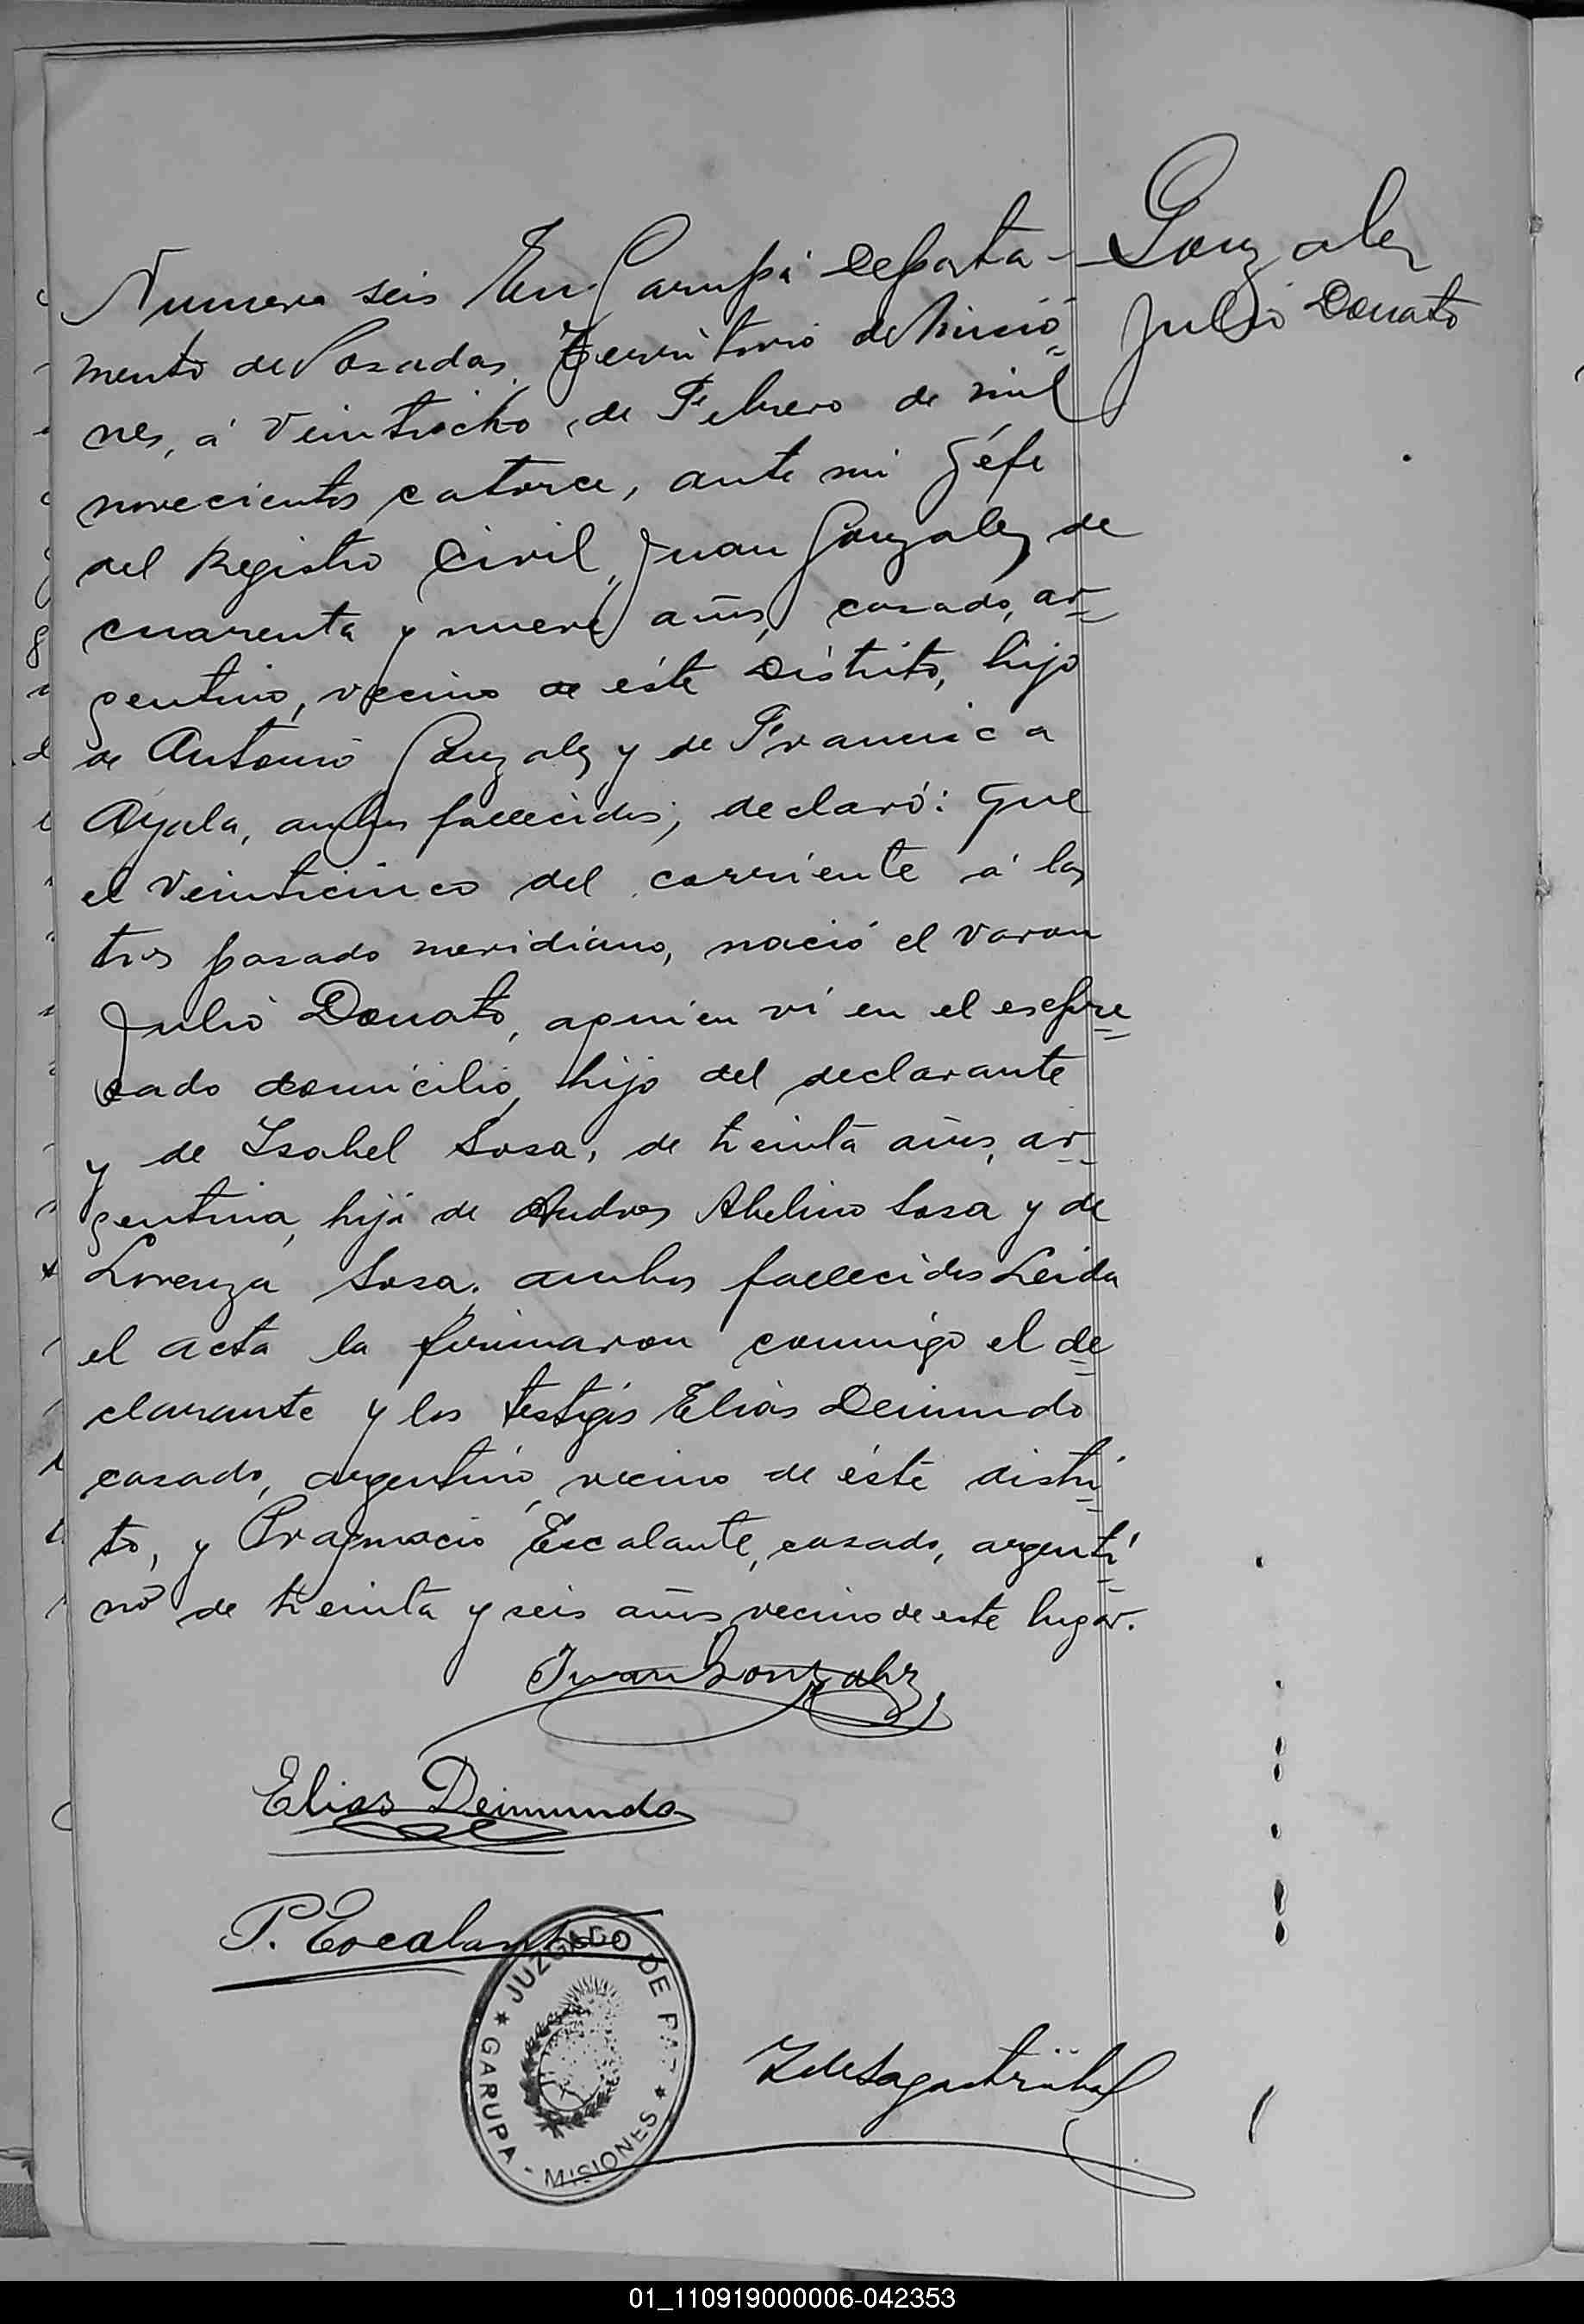 Gonzalez
Julio Donato
Numero seis En Garupá Departa-
mento de Posadas, Territorio de Misio-
nes, á veintiocho de Febrero de mil
novecientos catorce, ante mi Géfe
del Registro Civil, Juan Gonzalez de
cuarenta y nueve años, casado, ar-
gentino, vecino de éste Distrito, hijo
de Antonio Gonzalez y de Francisca
Ayala, ambos fallecidos, declaró: Que
el veinticinco del corriente á las
tres pasado meridiano, nació el varon
Julio Donato, aquien ví en el espre-
sado domicilio, hijo del declarante
y de Isabel Sosa, de treinta años, ar-
gentina, hija de Andres Abelino Sosa y de
Lorenza Sosa. ambos fallecidos Leida
el acta la firmaron conmigo el de-
clarante y los testigos Elias Deimundo
casado, argentino, vecino de éste distri-
to, y Pragmacio Escalante, casado, argenti-
no de treinta y seis años vecino de este lugar.
Juan Gonzalez
Elias Deimundo
P. Escalante
JUZGADO DE PAZ
GARUPA - MISIONES
01_110919000006-042353